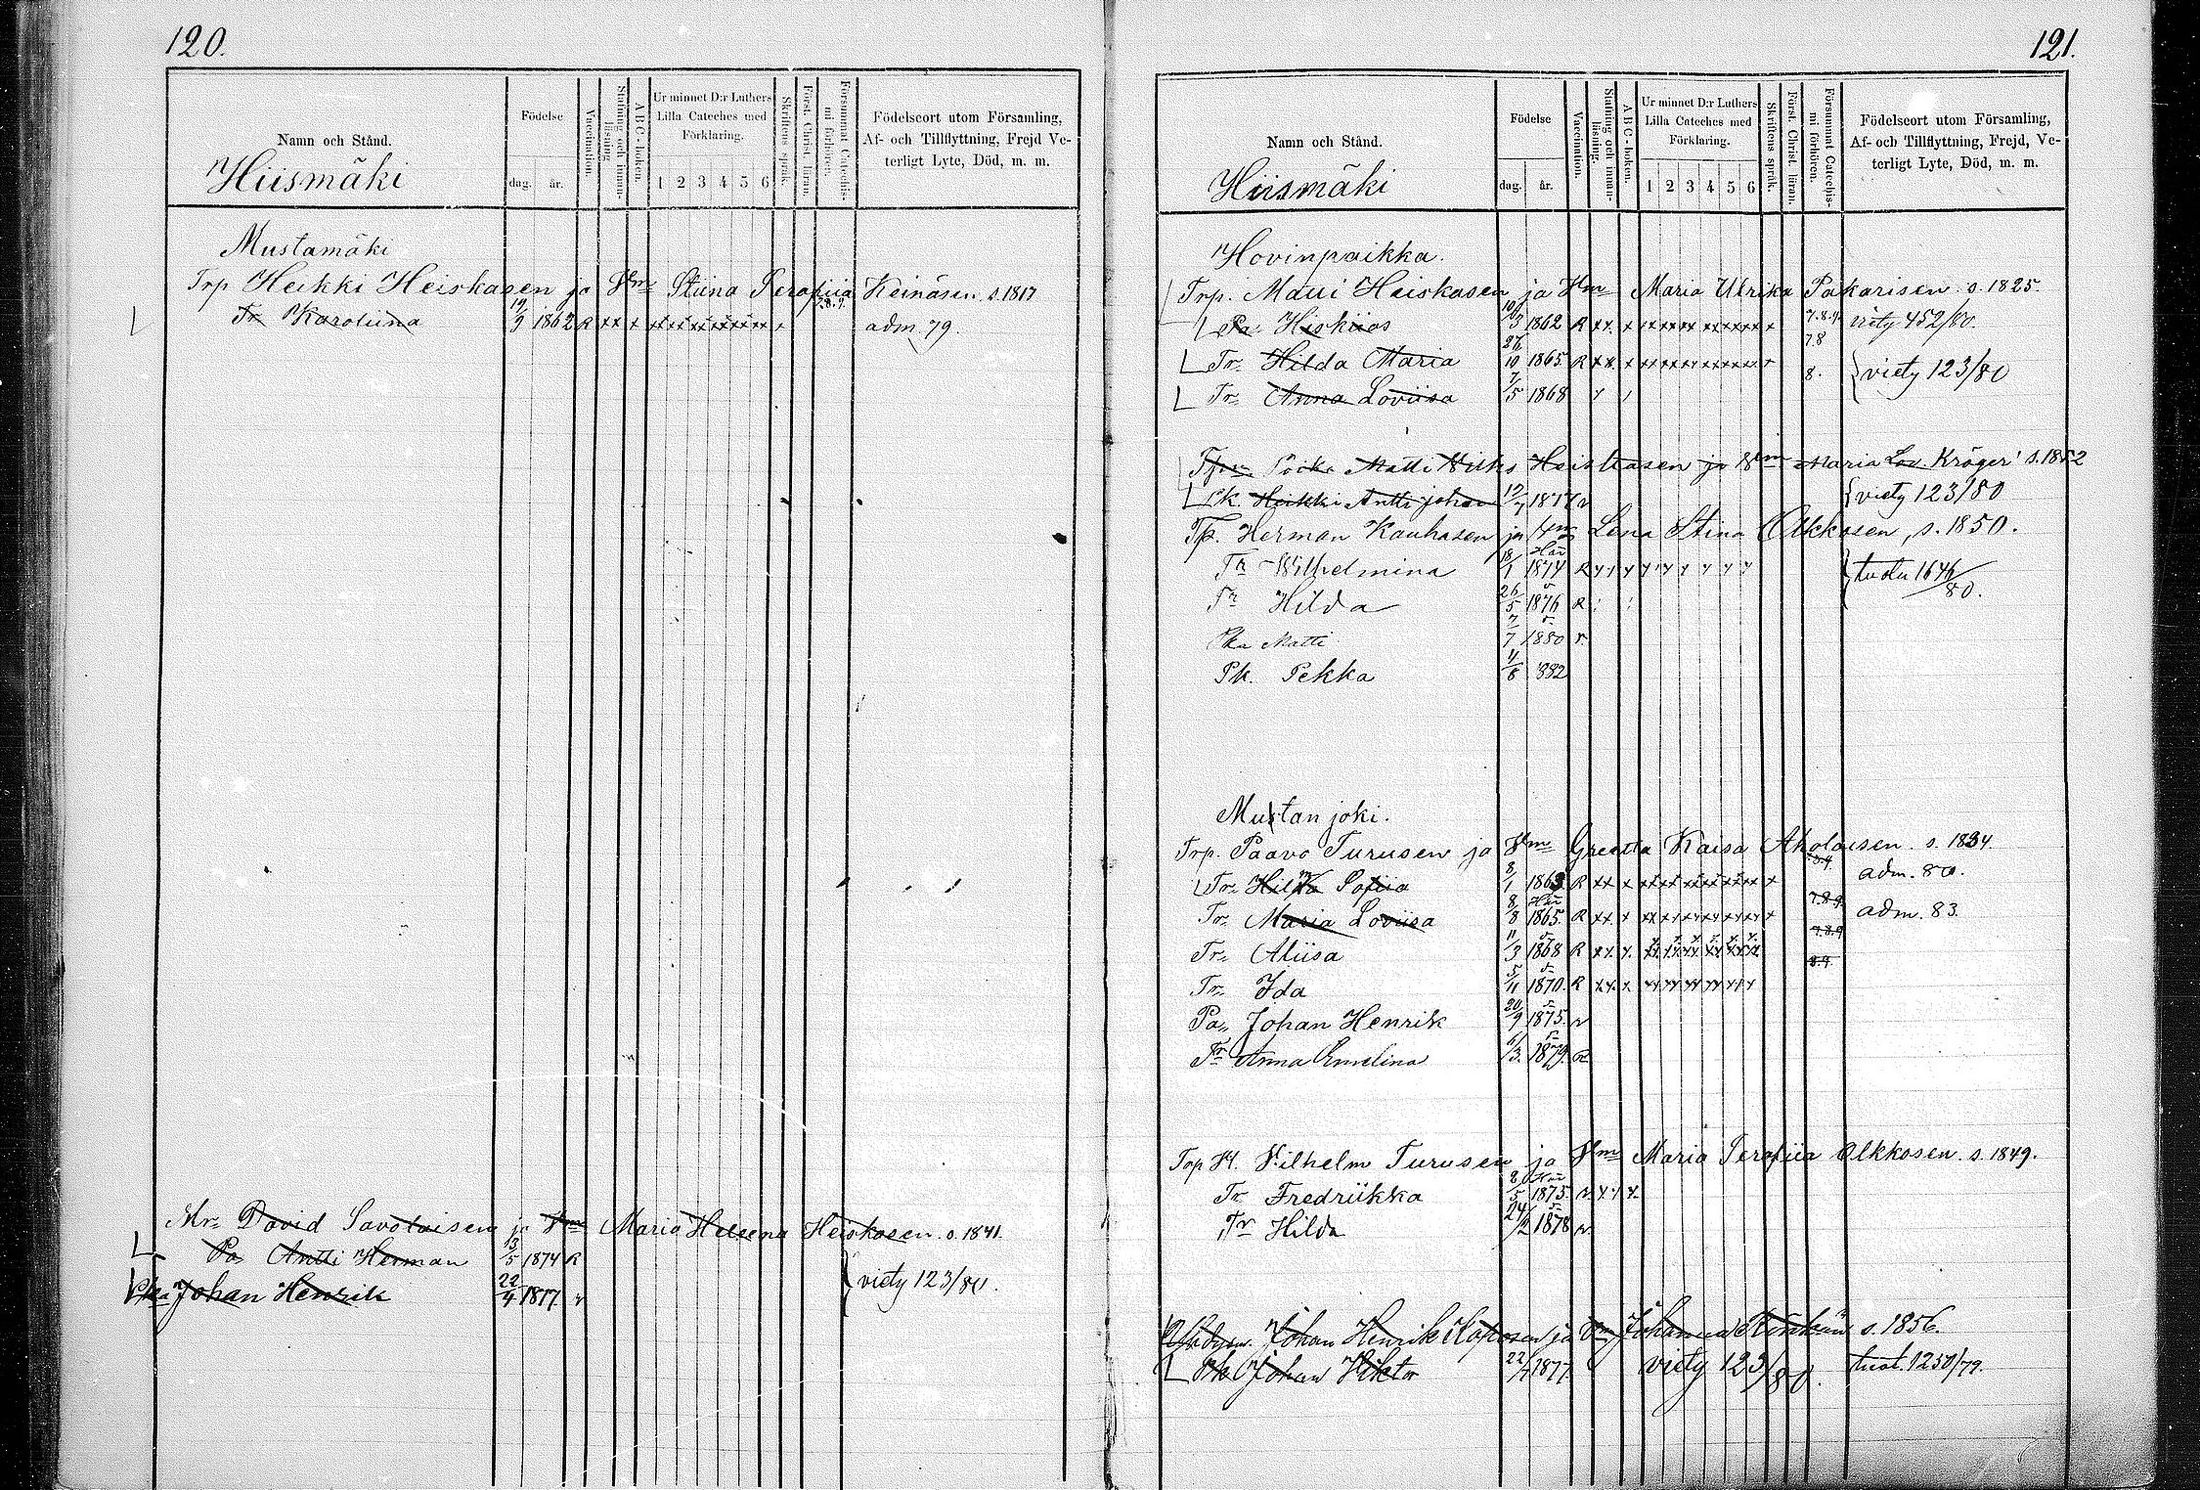 120.
Namn och Stånd.
Hiismäki
Födelse
dag. år.
Vaccination.
Stafning och innan-läsning.
A B C-boken.
Ur minnet D:r Luthers Lilla Cateches med Förklaring.
1 2 3 4 5 6
Skriftens språk.
Först. Christ. läran.
Försummat Catechis-mi förhören.
Födelseort utom Församling, Af- och Tillflyttning, Frejd Ve-terligt Lyte, Död, m. m.
Mustamäki
Trp Heikki Heiskasen ja Vm Stiina Serafiia Keinäsen s. 1817
Tr Karoliina 19/9 1862 R xx x xx xx xx xx xx xx x 7.8.9. adm. 79.
Mr David Savolaisen ja Vm Maria Helena Heiskasen s. 1841.
Pa Antti Herman 13/5 1874 R
Pka Johan Henrik 22/4 1877. r viety 123/80.
121.
Namn och Stånd.
Hiismäki
Födelse
dag. år.
Vaccination.
Stafning och innan-läsning.
A B C-boken.
Ur minnet D:r Luthers Lilla Cateches med Förklaring.
1 2 3 4 5 6
Skriftens språk.
Först. Christ. läran.
Försummat Catechis-mi förhören.
Födelseort utom Församling, Af- och Tillflyttning, Frejd, Ve-terligt Lyte, Död, m. m.
Hovinpaikka.
Trp. Maui Heiskasen ja Vm Maria Ulrika Pakarisen s. 1825.
Pa Hiskiias 10/3 1862 R xx. x xx xx xx xx xx xx x 7.8.9. viety 452/80.
Tr Hilda Maria 27/10 1865 R xx. x xx xx xx xx xx xx x 7.8
Tr Anna Loviisa 7/5 1868 8. viety 123/80
Matti Vilh Heiskasen ja Vm Maria Lov. Kröger s. 1852
Pk. Heikki Antti Johan 19/7 1877 r viety 123/80
Tp. Herman Kauhasen ja Vm Lena Stina Olkkosen, s. 1850.
Tr Wilhelmina 18/1 1874 R tuotu 1646/80.
Tr Hilda 26/5 1876 R
Pka Matti 7/7 1880 r.
Pk. Pekka 11/8 1882
Mustan joki.
Trp. Paavo Turusen ja Vm Greetta Kaisa Aholaisen. s. 1834.
Tr Hilda Sofiia 8/1 1863 R xx x xx xx xx xx xx xx x 8.9 adm. 80.
Tr Maria Loviisa 8/8 1865. R xx. x xx xx xx xx xx xx x 7.8.9 adm. 83.
Tr Aliisa 11/3 1868 R xx. x. 7.8.9
Tr Ida 5/11 1870. R xx. x 8.9.
Pa Johan Henrik 20/9 1875. r
Tr Anna Emelina 6/3. 1879. R
Trp H. Vilhelm Turusen ja Vm Maria Serafiia Olkkosen s. 1849.
Tr Fredriikka 8/5 1875. r.
Tr Hilda 24/2 1878 r.
Johan Henrik Kaposen ja Vm Johanna s. 1856.
Pk Johan Viktor 22/7 1877. viety 123/80. tuot. 1250/79.